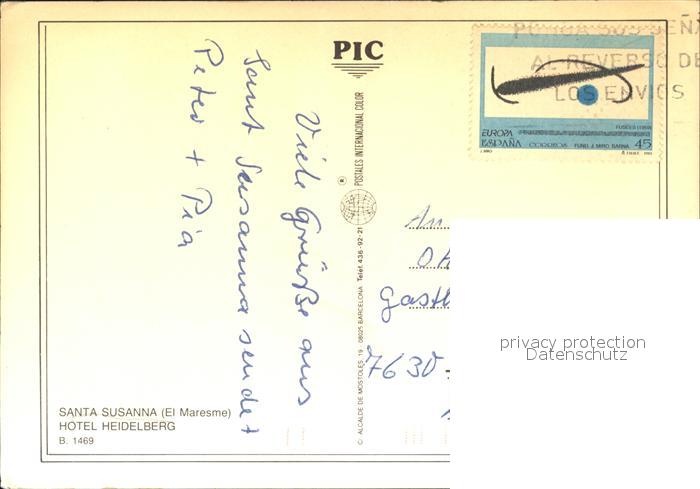 PIC
PONGA SUS SEÑA
AL REVERSO DE
LOS ENVIOS
EUROPA
ESPAÑA CORREOS FUND. J. MIRO BARNA 45
J. MIRO
Viele Grüße aus
Sant Susanna sendet
Peter + Pia
® POSTALES INTERNACIONAL COLOR
C. ALCALDE DE MOSTOLES, 19 08025 BARCELONA Telef. 436-92-21
An
Gastl
7630
privacy protection
Datenschutz
SANTA SUSANNA (El Maresme)
HOTEL HEIDELBERG
B. 1469